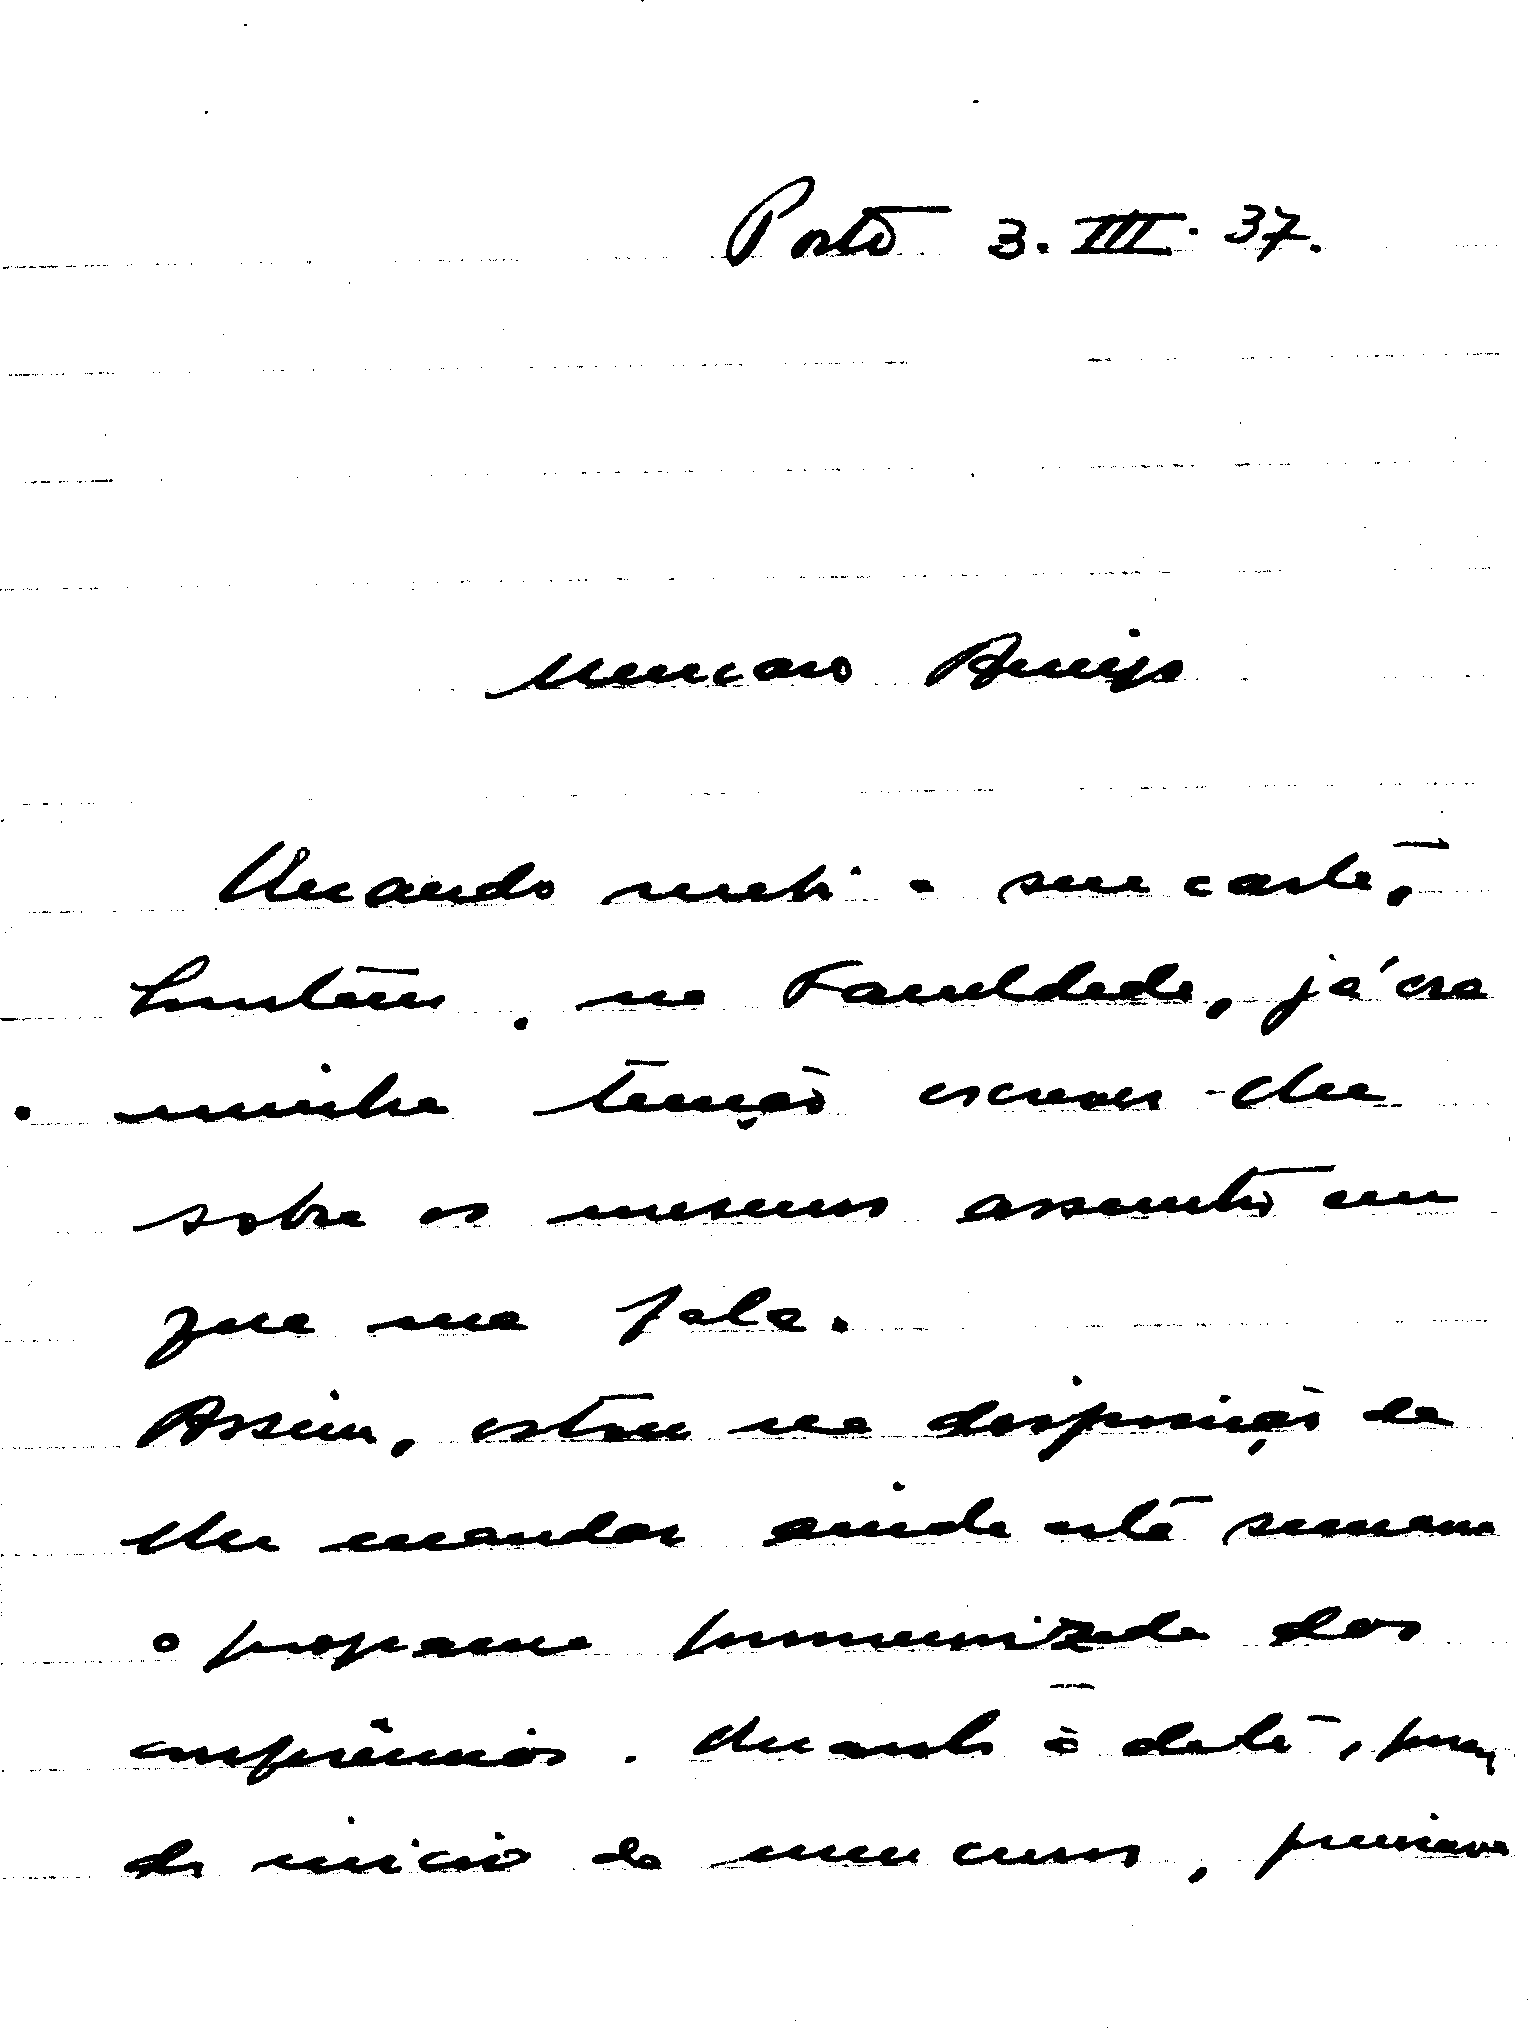 Porto 3.III.37.
Meu caro Amigo
Quando recebi a sua carta,
hontem, na Faculdade, já era
minha tenção escrever-lhe
sobre os mesmos assuntos em
que me fala.
Assim, estou na disposição de
lhe mandar ainda esta semana
o programa pormenorizado das
conferências. Quanto à data,
do inicio do meu curso, precisava